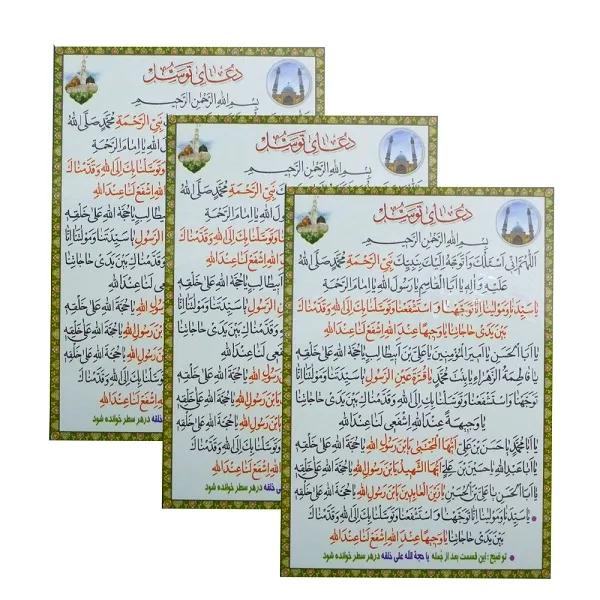 دعای توسل
بسم الله الرحمن الرحیم
دعای توسل
بسم الله الرحمن الرحیم
دعای توسل
بسم الله الرحمن الرحیم
اللهم انی اسئلک و اتوجه الیک بنبیک نبی الرحمة محمد صلی الله
علیه و اله یا ابا القاسم یا رسول الله یا امام الرحمة
یا سیدنا و مولینا انا توجهنا و استشفعنا و توسلنا بک الی الله و قدمناک
بین یدی حاجاتنا یا وجیها عند الله اشفع لنا عند الله
یا ابا الحسن یا امیر المؤمنین یا علی بن ابیطالب یا حجة الله علی خلقه
یا فاطمة الزهراء یا بنت محمد یا قرة عین الرسول یا سیدتنا و مولتنا انا
توجهنا و استشفعنا و توسلنا بک الی الله و قدمناک بین یدی حاجاتنا
یا وجیهة عند الله اشفعی لنا عند الله
یا ابا محمد یا حسن بن علی ایها المجتبی یابن رسول الله یا حجة الله علی خلقه
یا ابا عبد الله یا حسین بن علی ایها الشهید یابن رسول الله یا حجة الله علی خلقه
یا ابا الحسن یا علی بن الحسین یا زین العابدین یابن رسول الله یا حجة الله علی خلقه
یا سیدنا و مولینا انا توجهنا و استشفعنا و توسلنا بک الی الله و قدمناک
بین یدی حاجاتنا یا وجیها عند الله اشفع لنا عند الله
توضیح: این قسمت بعد از جمله یا حجة الله علی خلقه درهر سطر خوانده شود